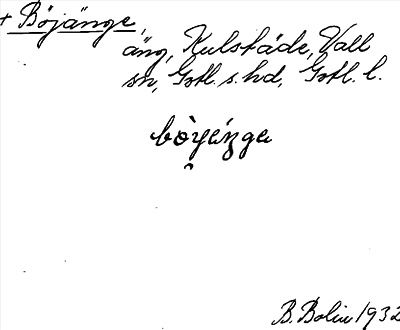 + Böjänge,
äng, Kulstäde, Vall
sn, Gotl. s. hd, Gotl. l.
bòyéŋga
B. Bolin 1932